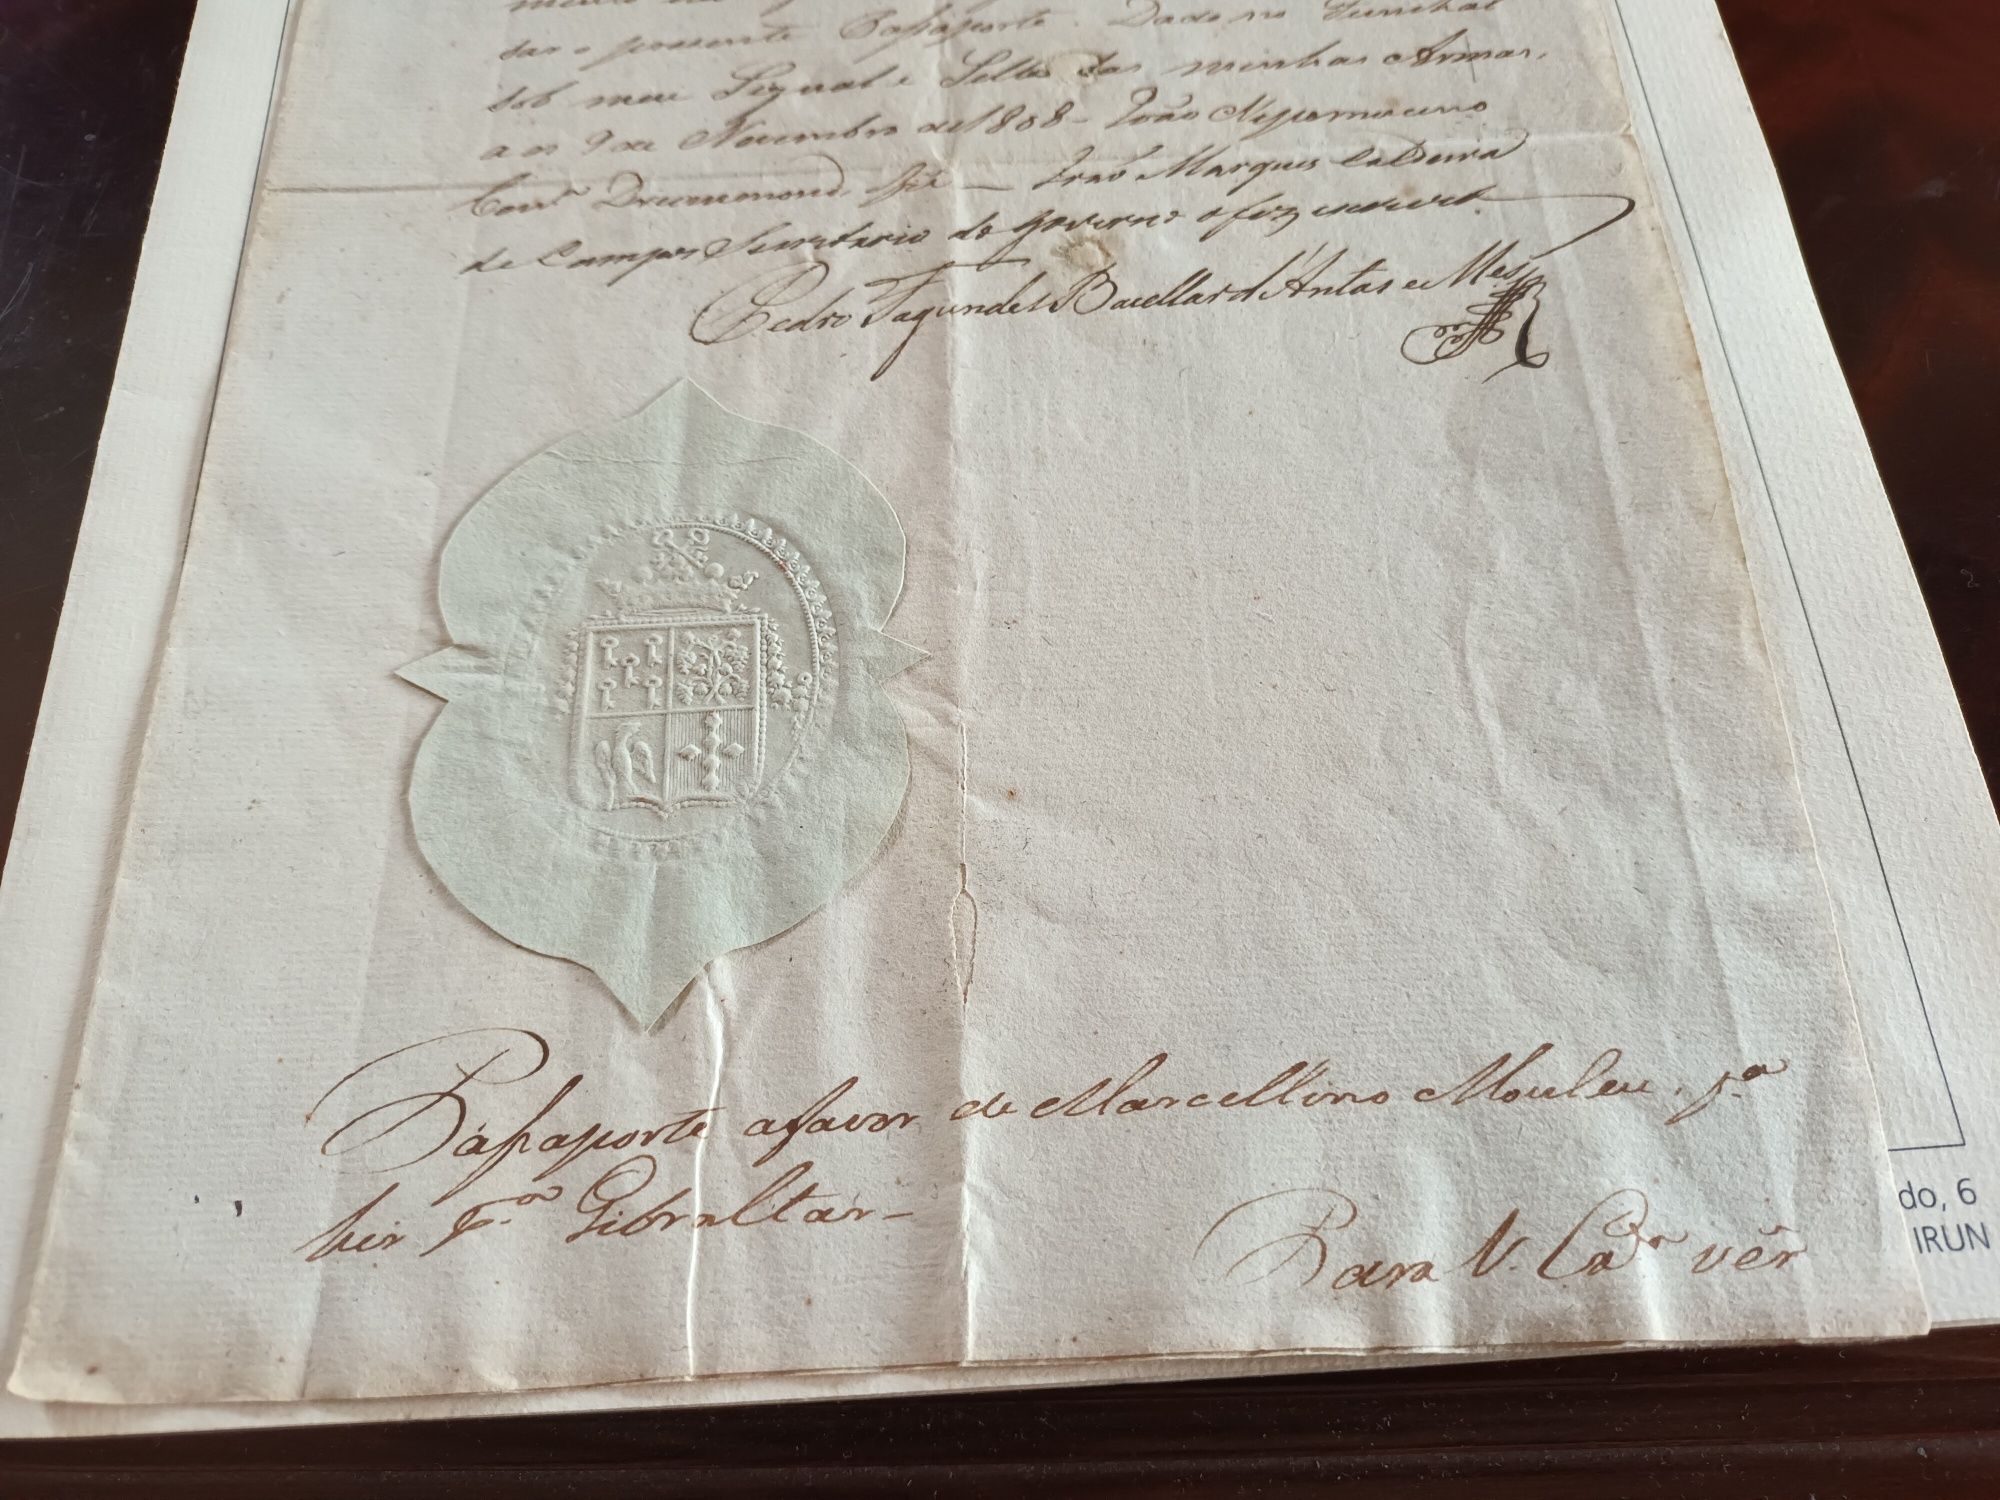 dar o presente Passaporte. Dado no Funchal
sob meu Signal e Sello das minhas Armas,
aos 9 de Novembro de 1808 - João Nepomuceno
Corrª Drummond, fêz — João Marques Caldeira
de Campos Secretario do Governo o fez escrever
Pedro Fagundes Bacellar d'Antas e Menezes
Passaporte a favor de Marcellino Mouleu. pª
hir pª Gibraltár-
Para V. Exª vêr
do, 6
IRUN